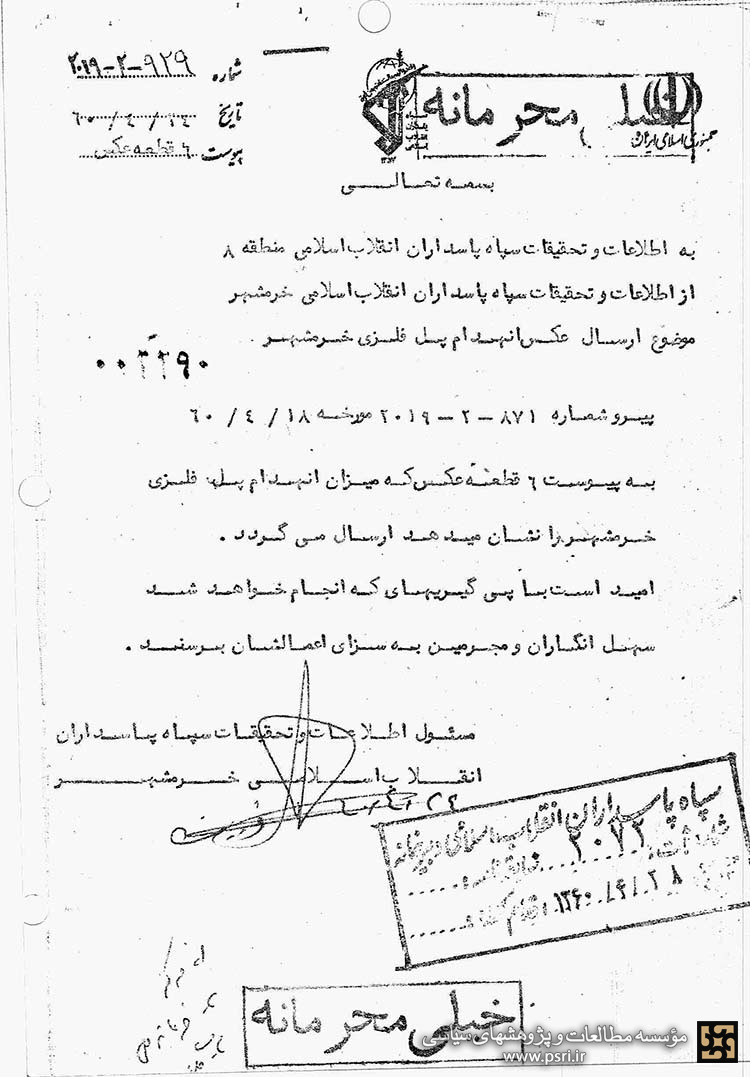 شماره ۹۲۹-۲-۲۰۱۹
تاریخ ۶۰/۴/۲۴
پیوست ۶ قطعه عکس
خیلی محرمانه
جمهوری اسلامی ایران
بسمه تعالی
به اطلاعات و تحقیقات سپاه پاسداران انقلاب اسلامی منطقه ۸
از اطلاعات و تحقیقات سپاه پاسداران انقلاب اسلامی خرمشهر
موضوع ارسال عکس انهدام پل فلزی خرمشهر .
پیرو شماره ۸۷۱ – ۲ – ۲۰۱۹ مورخه ۱۸ / ۴ / ۶۰
به پیوست ۶ قطعه عکس که میزان انهدام پل فلزی
خرمشهر را نشان میدهد ارسال می گردد .
امید است با پی گیریهای که انجام خواهد شد
سهل انگاران و مجرمین به سزای اعمالشان برسند .
مسئول اطلاعات و تحقیقات سپاه پاسداران
انقلاب اسلامی خرمشهر
سپاه پاسداران انقلاب اسلامی دبیرخانه
شماره ثبت: ۲۰۷۲
۱۳۶۰/۴/۲۸
خیلی محرمانه
مؤسسه مطالعات و پژوهشهای سیاسی
www.psri.ir